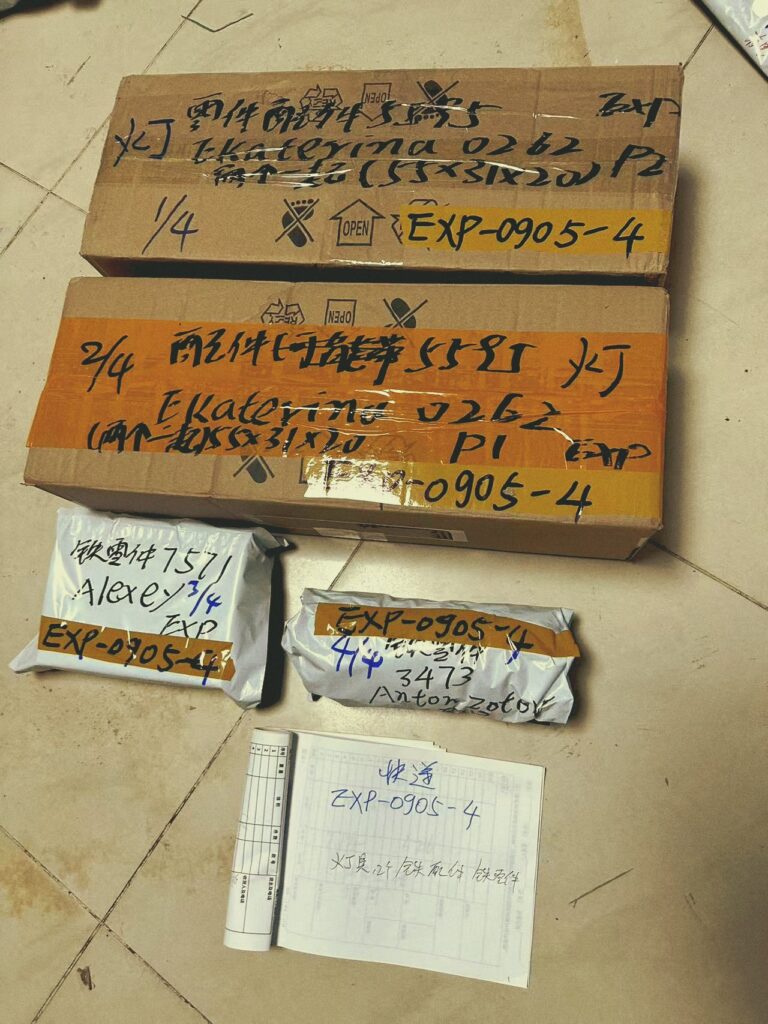 OPEN
灯 零件配件 55 EXP
Ekaterina 0262 P2
两个一起(55x31x20)
1/4
OPEN
EXP-0905-4
OPEN
2/4 配件 55 灯
Ekaterina 0262
(两个一起)55x31x20 P1 EXP
EXP-0905-4
铁零件7571
Alexey 3/4
EXP
EXP-0905-4
EXP-0905-4
4/4 铁零件
3473
Anton Zotov
快递
EXP-0905-4
灯具 铁配件 铁零件